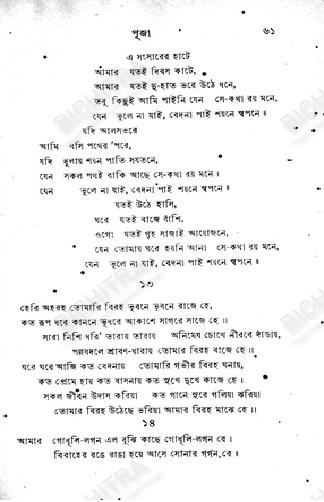 পূজা ৬১
এ সংসারের হাটে
আমার যতই দিবস কাটে,
আমার যতই দু-হাত ভরে উঠে ধনে,
তবু কিছুই আমি পাইনি যেন সে-কথা রয় মনে.
যেন ভুলে না যাই, বেদনা পাই শয়নে স্বপনে॥
যদি আলসভরে
আমি বসি পথের 'পরে,
যদি ধুলায় শয়ন পাতি সযতনে,
যেন সকল পথই বাকি আছে সে-কথা রয় মনে।
যেন ভুলে না যাই, বেদনা পাই শয়নে স্বপনে॥
যতই উঠে হাসি,
ঘরে যতই বাজে বাঁশি.
ওগো যতই গৃহ সাজাই আয়োজনে,
যেন তোমায় ঘরে হয়নি আনা সে-কথা রয় মনে।
যেন ভুলে না যাই, বেদনা পাই শয়নে স্বপনে॥
১৩
হেরি অহরহ তোমারি বিরহ ভুবনে ভুবনে রাজে হে,
কত রূপ ধরে কাননে ভূধরে আকাশে সাগরে সাজে হে॥
সারা নিশি ধরি' তারায় তারায় অনিমেষ চোখে নীরবে দাঁড়ায়,
পল্লবদলে শ্রাবণ-ধারায় তোমারি বিরহ বাজে হে॥
ঘরে ঘরে আজি কত বেদনায় তোমারি গভীর বিরহ ঘনায়,
কত প্রেমে হায় কত বাসনায় কত সুখে দুখে কাজে হে।
সকল জীবন উদাস করিয়া কত গানে সুরে গলিয়া ঝরিয়া
তোমার বিরহ উঠেছে ভরিয়া আমার বিরহ মাঝে হে॥
১৪
আমার গোধূলি-লগন এল বুঝি কাছে গোধূলি-লগন রে।
বিবাহের রঙে রাঙা হয়ে আসে সোনার গগন রে॥